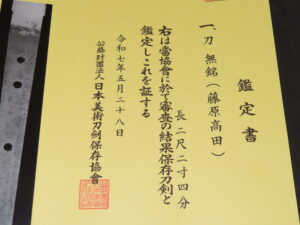 鑑定書
一、刀 無銘(藤原高田)
長 二尺二寸四分
右は當協會に於て審査の結果保存刀剣と
鑑定しこれを証する
令和七年五月二十八日
公益財團法人 日本美術刀剣保存協會